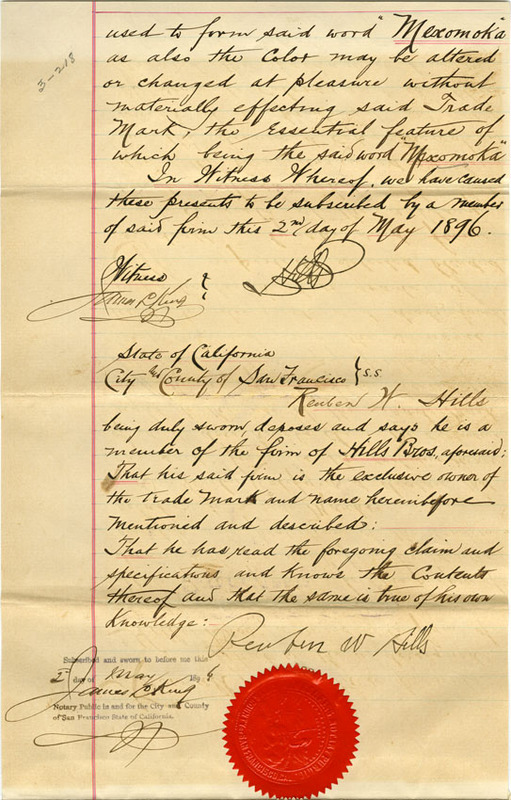 3-213
used to form said word "Mexomoka"
as also the Color may be altered
or changed at pleasure without
materially effecting said Trade
Mark, the Essential feature of
which being the said word "Mexomoka"
In Witness Whereof, we have caused
these presents to be subscribed by a member
of said firm this 2nd day of May 1896.
Witness
James L. King
State of California
City and County of San Francisco } S.S.
Reuben W. Hills
being duly sworn deposes and says he is a
member of the firm of Hills Bros, aforesaid:
That his said firm is the exclusive owner of
the trade Mark and name hereinbefore
Mentioned and described:
That he has read the foregoing claim and
specifications and Knows the Contents
thereof and that the same is true of his own
Knowledge:
Reuben W Hills
Subscribed and sworn to before me this
2d day of May 1896
James L. King
Notary Public in and for the City and County
of San Francisco State of California.